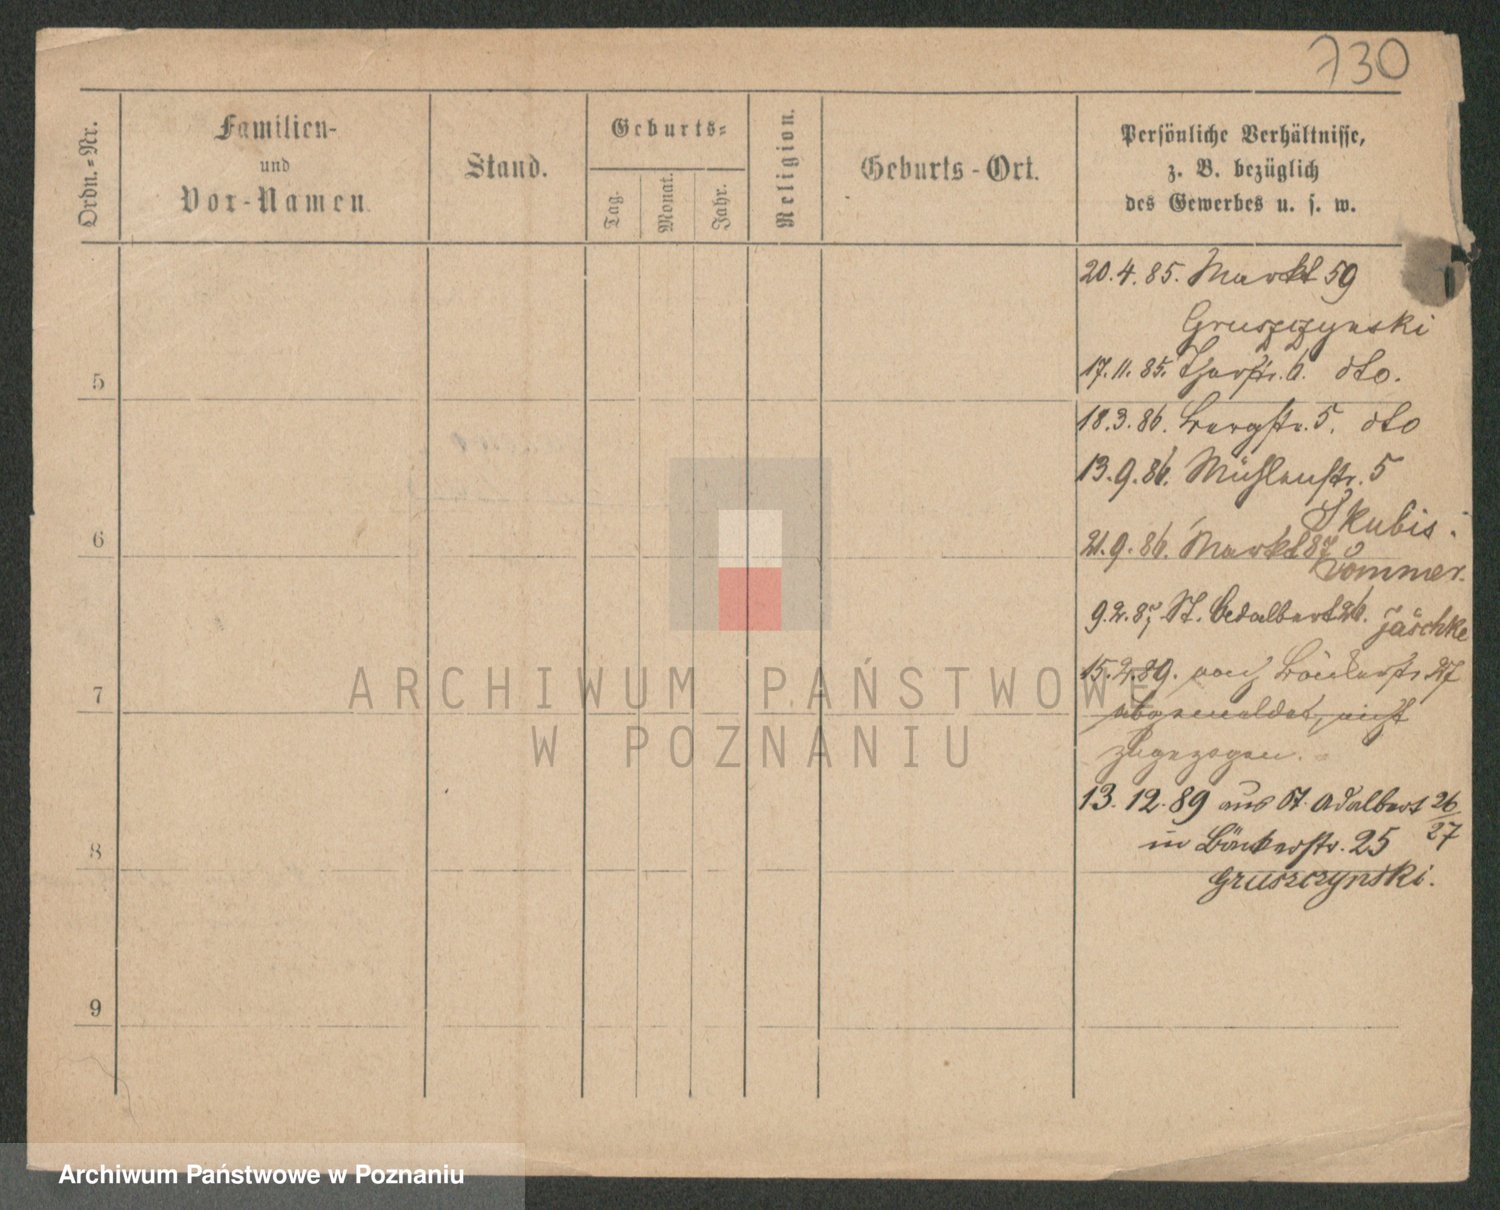 730
Ordn.-Nr.
Familien-
und
Vor-Namen.
Stand.
Geburts-
Tag.
Monat.
Jahr.
Religion.
Geburts-Ort.
Persönliche Verhältnisse,
z. B. bezüglich
des Gewerbes u. s. w.
20.4.85. Markt 59
Gruszczynski
5
17.11.85. 6. dto.
18.3.86. Bergstr. 5. dto
13.9.86. Mühlenstr. 5
Skubis.
6
21.9.86. Markt 87
9.2.87. St. Adalbert 26. Jäschke
15.2.89. nach Bäckerstr. 27
7
abgemeldet, nicht
zugezogen.
13.12.89 aus St. Adalbert 26/27
in Bäckerstr. 25
8
Gruszczynski.
9
ARCHIWUM PAŃSTWOWE
W POZNANIU
Archiwum Państwowe w Poznaniu